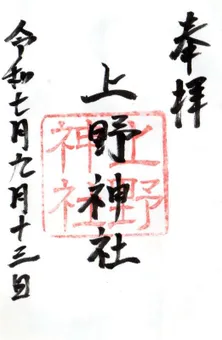 奉拝
上野神社
上野神社
令和七月九月十三日